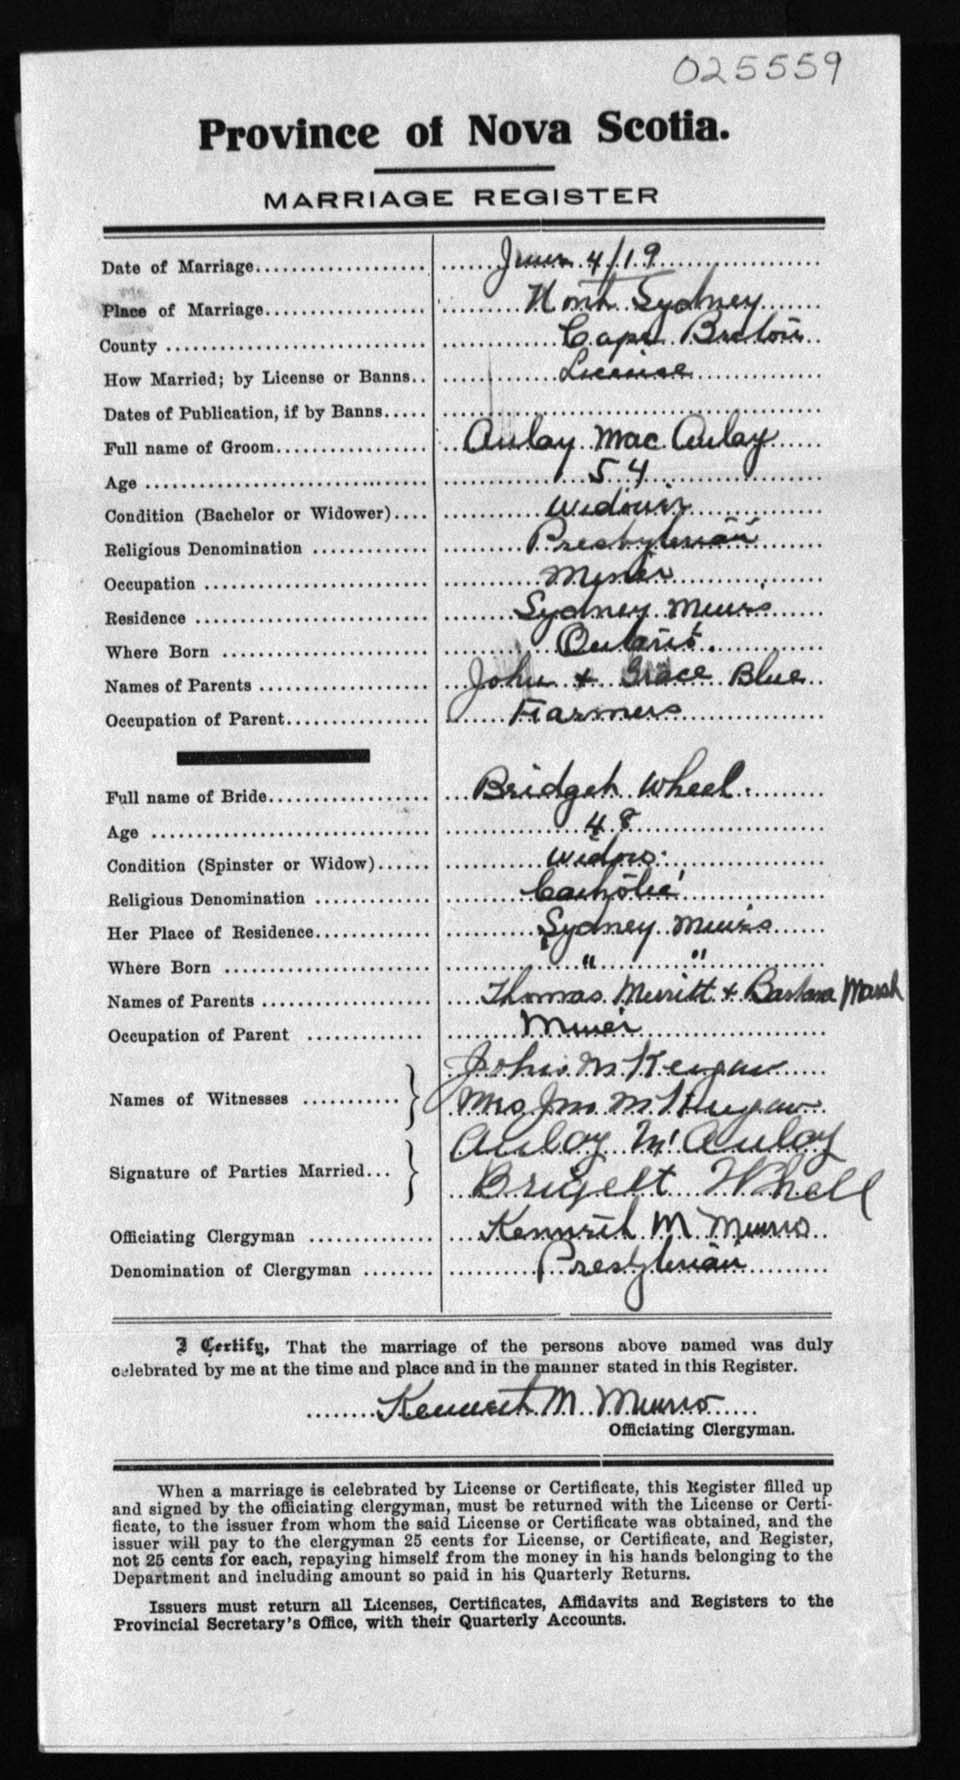 025559
Province of Nova Scotia.
MARRIAGE REGISTER
Date of Marriage.................... June 4/19
Place of Marriage................... North Sydney
County .............................. Cape Breton
How Married; by License or Banns.. License
Dates of Publication, if by Banns.....
Full name of Groom.................. Aulay Mac Aulay
Age ................................. 54
Condition (Bachelor or Widower).... Widower
Religious Denomination ............. Presbyterian
Occupation .......................... Miner
Residence ........................... Sydney Mines
Where Born ........................ Ontario.
Names of Parents .................... John & Grace Blue
Occupation of Parent................. Farmers
Full name of Bride................... Bridget Wheel.
Age ................................. 48
Condition (Spinster or Widow)...... Widow.
Religious Denomination ............. Catholic
Her Place of Residence............. Sydney Mines
Where Born ........................ " "
Names of Parents .................... Thomas Merritt & Barbara Marsh
Occupation of Parent .............. Miner
John Mc
Names of Witnesses ........... } Mrs Jno Mc
Aulay Mc Aulay
Signature of Parties Married... } Brigett Whell
Officiating Clergyman .............. Kenneth M Munro
Denomination of Clergyman ........ Presbyterian
I Certify, That the marriage of the persons above named was duly
celebrated by me at the time and place and in the manner stated in this Register.
Kenneth M. Munro
Officiating Clergyman.
When a marriage is celebrated by License or Certificate, this Register filled up
and signed by the officiating clergyman, must be returned with the License or Certi-
ficate, to the issuer from whom the said License or Certificate was obtained, and the
issuer will pay to the clergyman 25 cents for License, or Certificate, and Register,
not 25 cents for each, repaying himself from the money in his hands belonging to the
Department and including amount so paid in his Quarterly Returns.
Issuers must return all Licenses, Certificates, Affidavits and Registers to the
Provincial Secretary's Office, with their Quarterly Accounts.